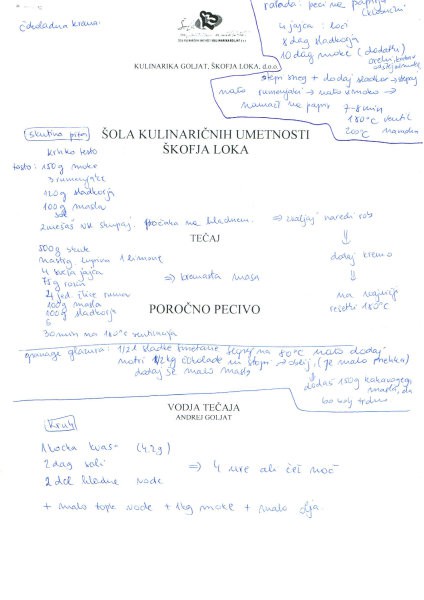 čokoladna krema
rolada: peci na papirju
4 jajca: loči
8 dag sladkorja
10 dag moke (dodatki)
KULINARIKA GOLJAT, ŠKOFJA LOKA, d.o.o.
stepi sneg + dodaj sladkor → stepaj
nato rumenjaki → nato z moko →
namaži na papir 7-8 min
180°C ventil
200°C navadna
skutina pita
ŠOLA KULINARIČNIH UMETNOSTI
ŠKOFJA LOKA
krhko testo
testo: 150g moke
3 rumenjake
120g sladkorja
100g masla
sol
zmešaš vse skupaj. počitka na hladnem. ⇒ zvaljaj naredi rob
TEČAJ
500g skute
nastrg. lupina 1 limone
4 cela jajca ⇒ kremasta masa
75g rozin
2 jed. žlice ruma
100g masla
100g sladkorja
dodaj kremo
na najnižjo
rešetko 180°C
POROČNO PECIVO
30 min na 180°C
ganage glazura: 1/2 l sladke smetane segrej na 80°C nato dodaj
notri 1/2 kg čokolade in stopi → delij. (je malo mehka)
dodaj še malo masla
dodaš 150g kakavovega
masla, da
bo bolj trdno
VODJA TEČAJA
ANDREJ GOLJAT
Kruh
1 kocka kvas (42g)
2 dag soli ⇒ 4 ure ali čez noč
2 dcl hladne vode
+ malo tople vode + 1kg moke + malo olja.